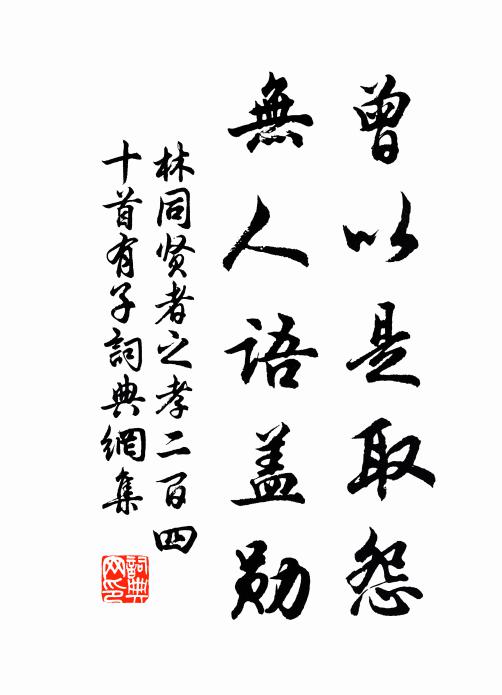 曾以是取怨
無人語盖勋
林同贤者之孝二百四
十首有子詞典網集
詞典网印